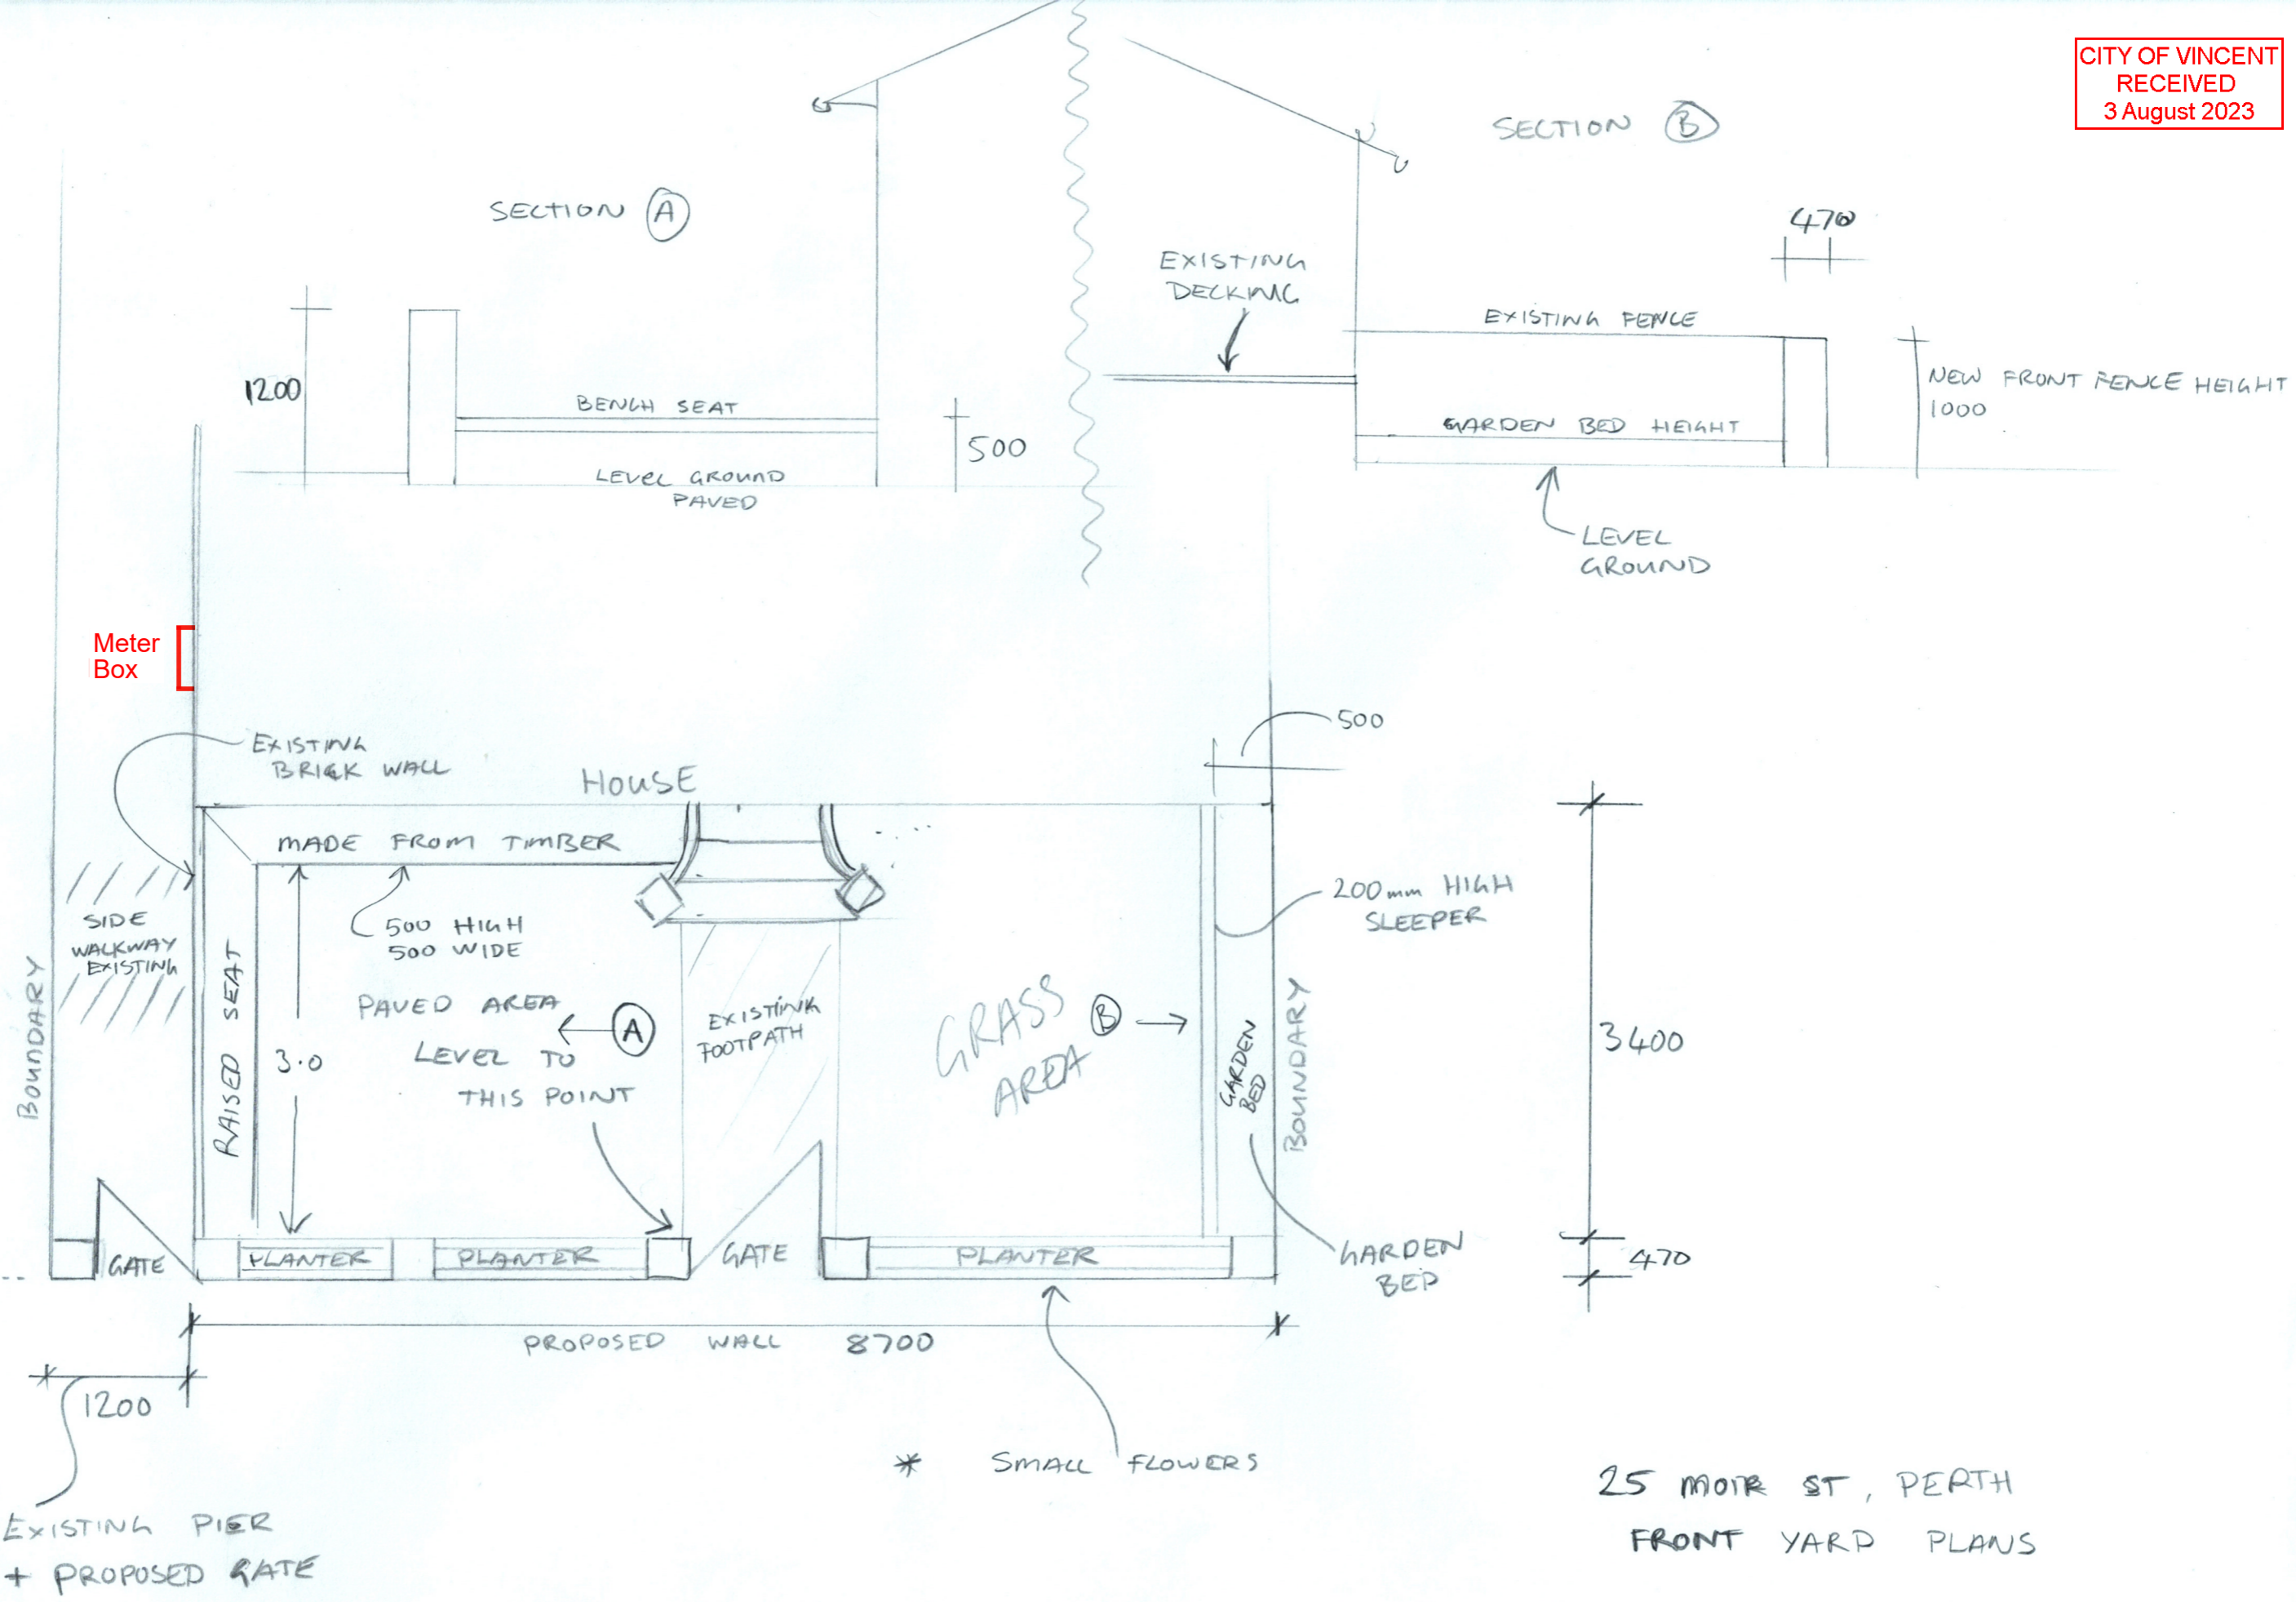 CITY OF VINCENT
RECEIVED
3 August 2023
SECTION B
SECTION A
470
EXISTING
DECKING
EXISTING FENCE
NEW FRONT FENCE HEIGHT
1000
1200
BENCH SEAT
500
GARDEN BED HEIGHT
LEVEL GROUND
PAVED
LEVEL
GROUND
Meter
Box
EXISTING
BRICK WALL
HOUSE
500
MADE FROM TIMBER
500 HIGH
500 WIDE
200mm HIGH
SLEEPER
SIDE
WALKWAY
EXISTING
BOUNDARY
RAISED SEAT
3.0
PAVED AREA
A
LEVEL TO
THIS POINT
EXISTING
FOOTPATH
GRASS
AREA
B
GARDEN
BED
BOUNDARY
3400
GATE
PLANTER
PLANTER
GATE
PLANTER
GARDEN
BED
470
PROPOSED WALL 8700
1200
* SMALL FLOWERS
EXISTING PIER
+ PROPOSED GATE
25 MOIR ST, PERTH
FRONT YARD PLANS